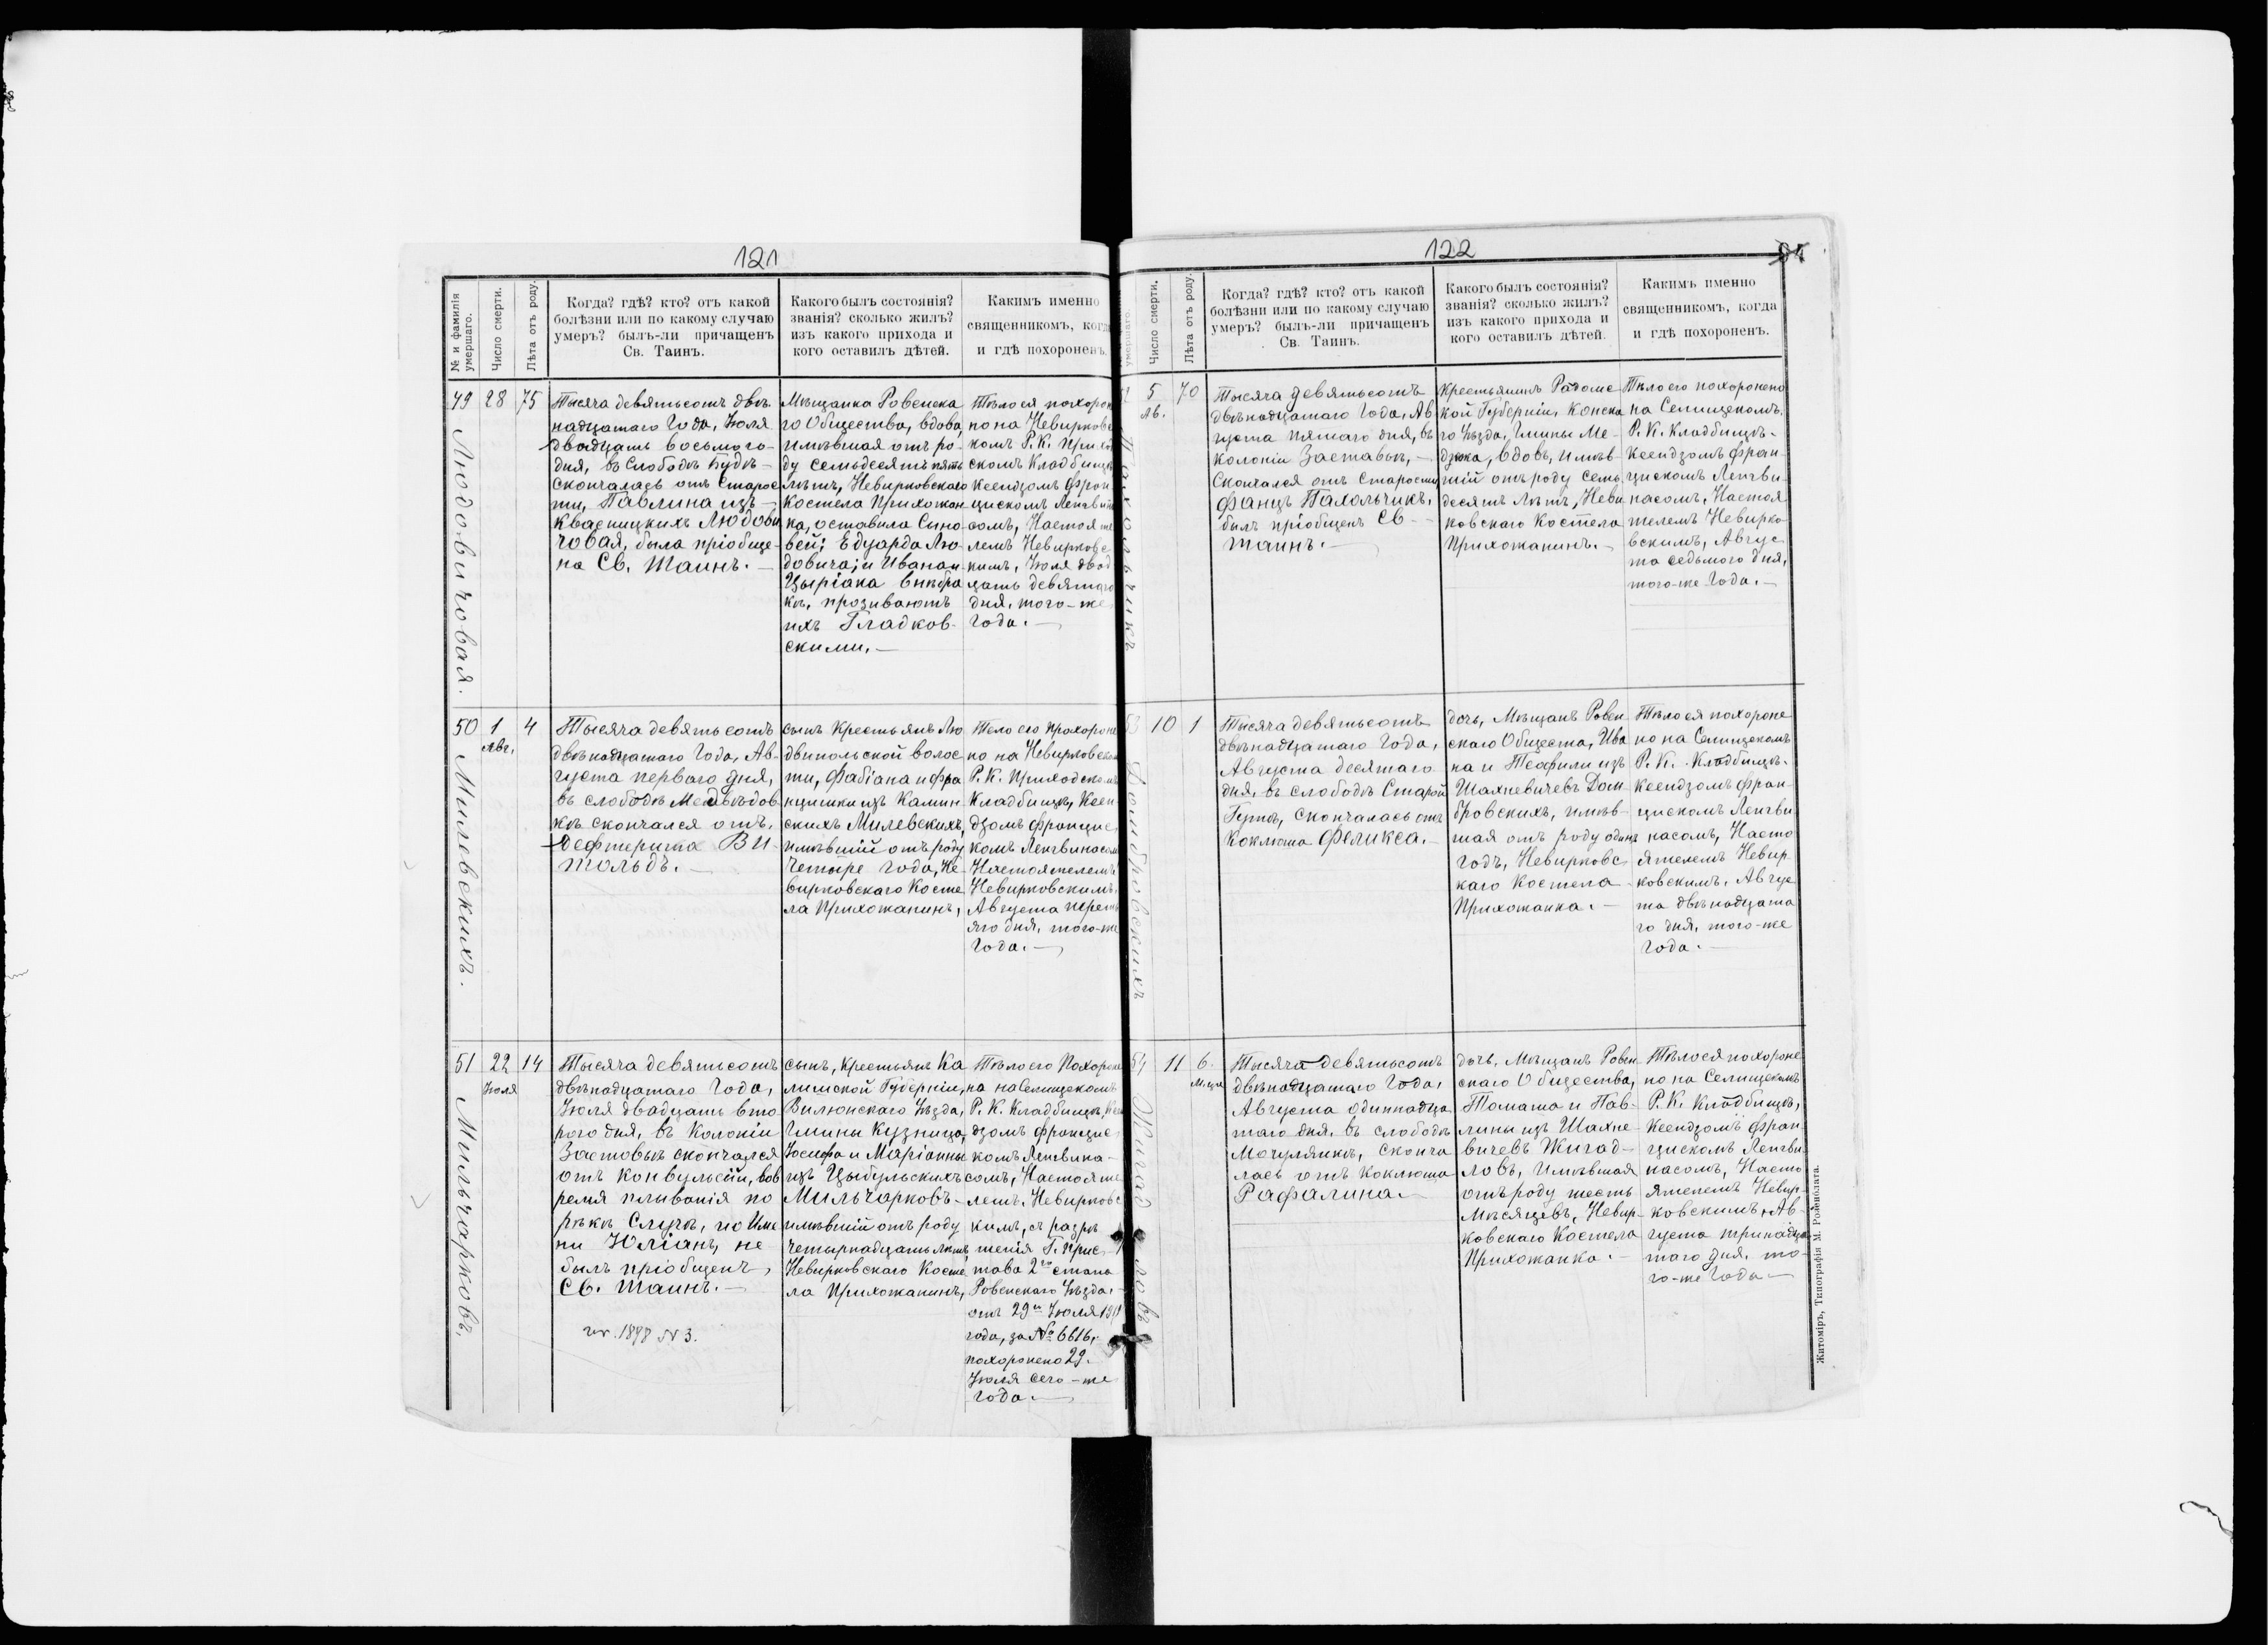 121
№ и фамилія умершаго.
Число смерти.
Лѣта отъ роду.
Когда? гдѣ? кто? отъ какой
болѣзни или по какому случаю
умеръ? былъ-ли причащенъ
Св. Таинъ.
Какого былъ состоянія?
званія? сколько жилъ?
изъ какого прихода и
кого оставилъ дѣтей.
Какимъ именно
священникомъ, когда
и гдѣ похороненъ.
49
Людовичовая.
28
75
Тысяча девятьсотъ двѣ
надцатаго Года, Іюля
двадцать восьмого
дня, въ Слободѣ Будкѣ
скончалась отъ Старос
ти, Павлина изъ
Квасницкихъ Людови
човая, была пріобще-
на Св. Таинъ.
Мѣщанка Ровенска
го Общества, вдова,
имѣвшая отъ ро-
ду семьдесятъ пять
лѣтъ, Невирковскаго
Костела Прихожан
ка, оставила Сыно
вей: Едуарда Лю-
довича, и Ивана и
Цыріака внѣбра
кѣ, прозываютъ
ихъ Гладков-
скими.
Тѣло ея похорон
но на Невирковс
комъ Р. К. Приход
скомъ Кладбищѣ
Ксендзомъ Фран
цискомъ Ленгвин
сомъ, Настояте
лемъ Невирковс
кимъ, Іюля двад
цать девятаго
дня, того-же
Года.
50
Милевскихъ.
1
Авг.
4
Тысяча девятьсотъ
двѣнадцатаго Года, Ав-
густа перваго дня,
въ слободѣ Медвѣдов
кѣ скончался отъ
Дефтерита Ви-
тольдъ.
сынъ Крестьянъ Лю
двипольской волос
ти, Фабіана и Фра
нцишки изъ Камин
скихъ Милевскихъ,
имѣвшій отъ роду
Четыре Года, Не-
вирковскаго Косте
ла Прихожанинъ,
Тело его Прохороне
но на Невирковском
Р. К. Приходском
Кладбищѣ, Ксен
дзомъ Францис
комъ Ленгвинасом
Настоятелемъ
Невирковскимъ,
Августа трет
яго дня, того-же
Года.
51
Мильчарковъ.
22
Іюля
14
Тысяча девятьсотъ
двѣнадцатаго Года,
Іюля двадцать вто
рого дня, въ Колоніи
Заставьѣ скончался
отъ конвульсіи, вов
ремя плыванія по
рѣкѣ Случѣ, по Име
ни Юліанъ, не
былъ пріобщенъ,
Св. Таинъ.
ur. 1898 N 3.
сынъ, Крестьянъ Ка
лишской Губерніи,
Вилюнскаго Уѣзда,
Гмины Кузница,
Іосифа и Маріанны
изъ Цыбульскихъ
Мильчарковъ
имѣвшій отъ роду
Четырнадцать лѣтъ,
Невирковскаго Косте
ла Прихожанинъ,
Тѣло его Похороне
на на Селищскомъ
Р. К. Кладбищѣ, Ксен
дзомъ Францис
комъ Ленгвина-
сомъ, Настояте
лемъ, Невирковс
кимъ, съ разрѣ
шенія Г. Прис
тава 2го стана
Ровенскаго Уѣзда,
отъ 29го Іюля 191
года, за № 6616,
похоронено 29
Іюля сего-же
Года.
122
умершаго.
Число смерти.
Лѣта отъ роду.
Когда? гдѣ? кто? отъ какой
болѣзни или по какому случаю
умеръ? былъ-ли причащенъ
Св. Таинъ.
Какого былъ состоянія?
званія? сколько жилъ?
изъ какого прихода и
кого оставилъ дѣтей.
Какимъ именно
священникомъ, когда
и гдѣ похороненъ.
Пахольчикъ
5
Ав.
70
Тысяча девятьсотъ
двѣнадцатаго Года, Ав
густа пятаго дня, въ
Колоніи Заставьѣ,
Скончался отъ Старости
Францъ Пахольчикъ,
былъ пріобщенъ Св
Таинъ.
Крестьянинъ Радомс
кой Губерніи, Конска
го Уѣзда, Гмины Ме-
джка, вдовъ, имѣв
шій отъ роду семь
десятъ Лѣтъ, Неви
ковскаго Костела
Прихожанинъ.
Тѣло его похоронено
на Селищскомъ
Р. К. Кладбищѣ
Ксендзомъ Фран-
цискомъ Ленгви
насомъ, Настоя
телемъ Невирко
вскимъ, Авгус
та седьмого дня,
того-же Года.
53
Домбровскихъ
10
1
Тысяча девятьсотъ
двѣнадцатаго Года,
Августа десятаго
дня, въ слободѣ Старой
Гутѣ, скончалась отъ
Коклюша Феликса.
дочь, Мѣщанъ Ровен
скаго Общества, Ива
на и Теофили изъ
Шахневичевъ Дом
бровскихъ, имѣв
шая отъ роду одинъ
Годъ, Невирковс
каго Костела
Прихожанка.
Тѣло ея похороне
но на Селищскомъ
Р. К. Кладбищѣ.
Ксендзомъ Фран-
цискомъ Ленгви
насомъ, Насто
ятелемъ Невир
ковскимъ, Авгус
та двѣнадцата
го дня, того-же
Года.
54
Жигадловъ
11
6
Мѣсяц
Тысяча девятьсотъ
двѣнадцатаго Года,
Августа одиннадца
таго дня, въ слободѣ
Мочулянкѣ, сконча
лась отъ Коклюша
Рафалина.
дочь, Мѣщанъ Ровен
скаго Общества,
Томаша и Пав-
лины изъ Шахне
вичевъ Жигад-
ловъ, имѣвшая
отъ роду шесть
Мѣсяцевъ, Невир-
ковскаго Костела
Прихожанка.
Тѣло ея похороне
но на Селищскомъ
Р. К. Кладбищѣ,
Ксендзомъ Фран
цискомъ Ленгви
насомъ, Насто
ятелемъ Невир-
ковскимъ, Ав-
густа тринадца
таго дня, то-
го-же Года
Житоміръ, Типографія М. Ройнблата.